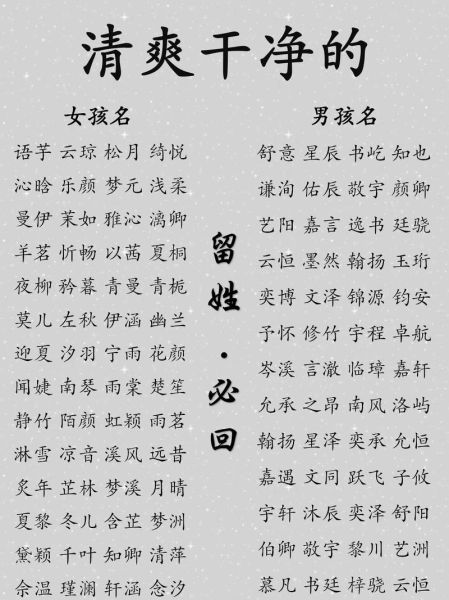 清爽干净的
女孩名
语芋 云琼 松月 绮悦
沁晗 乐颜 梦元 浅柔
曼伊 茉如 雅沁 漓卿
羊茗 忻畅 以茜 夏桐
夜柳 矜暮 青曼 青栀
莫儿 左秋 伊涵 幽兰
迎夏 汐羽 宁雨 花颜
闻婕 南琴 雨棠 楚笙
静竹 陌颜 虹颖 雨茗
淋雪 凉音 溪风 远昔
炙年 芷林 梦溪 月晴
夏黎 冬儿 含芷 梦洲
黛颖 千叶 知卿 清萍
佘温 瑾澜 轩涵 念汐
留姓·必回
男孩名
舒意 星辰 书屹 知也
谦洵 佑辰 敬宇 颜卿
艺阳 嘉言 逸书 廷骁
云恒 墨然 翰扬 玉珩
奕博 文泽 锦源 钧安
予怀 修竹 宇程 卓航
岑溪 言澈 临璋 嘉轩
允承 之昂 南风 洛屿
翰扬 星泽 奕承 允恒
嘉遇 文同 跃飞 子攸
宇轩 沐辰 奕泽 舒阳
伯卿 敬宇 黎川 艺洲
慕凡 书廷 梓骁 云恒